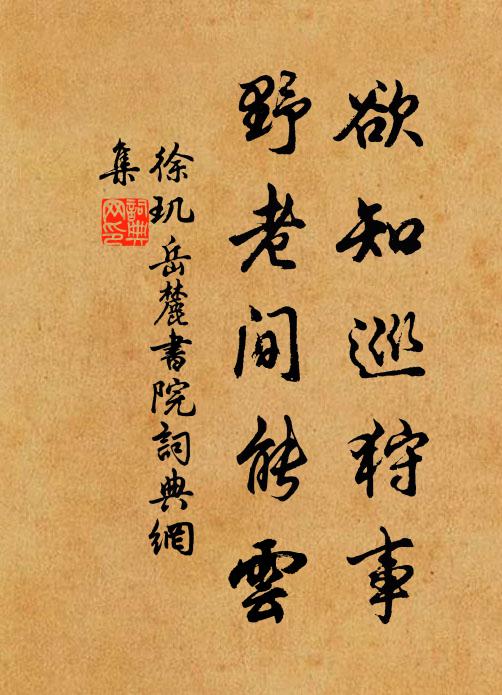 欲知巡狩事
野老间能雲
徐玑岳麓書院詞典網
集
詞典
网印